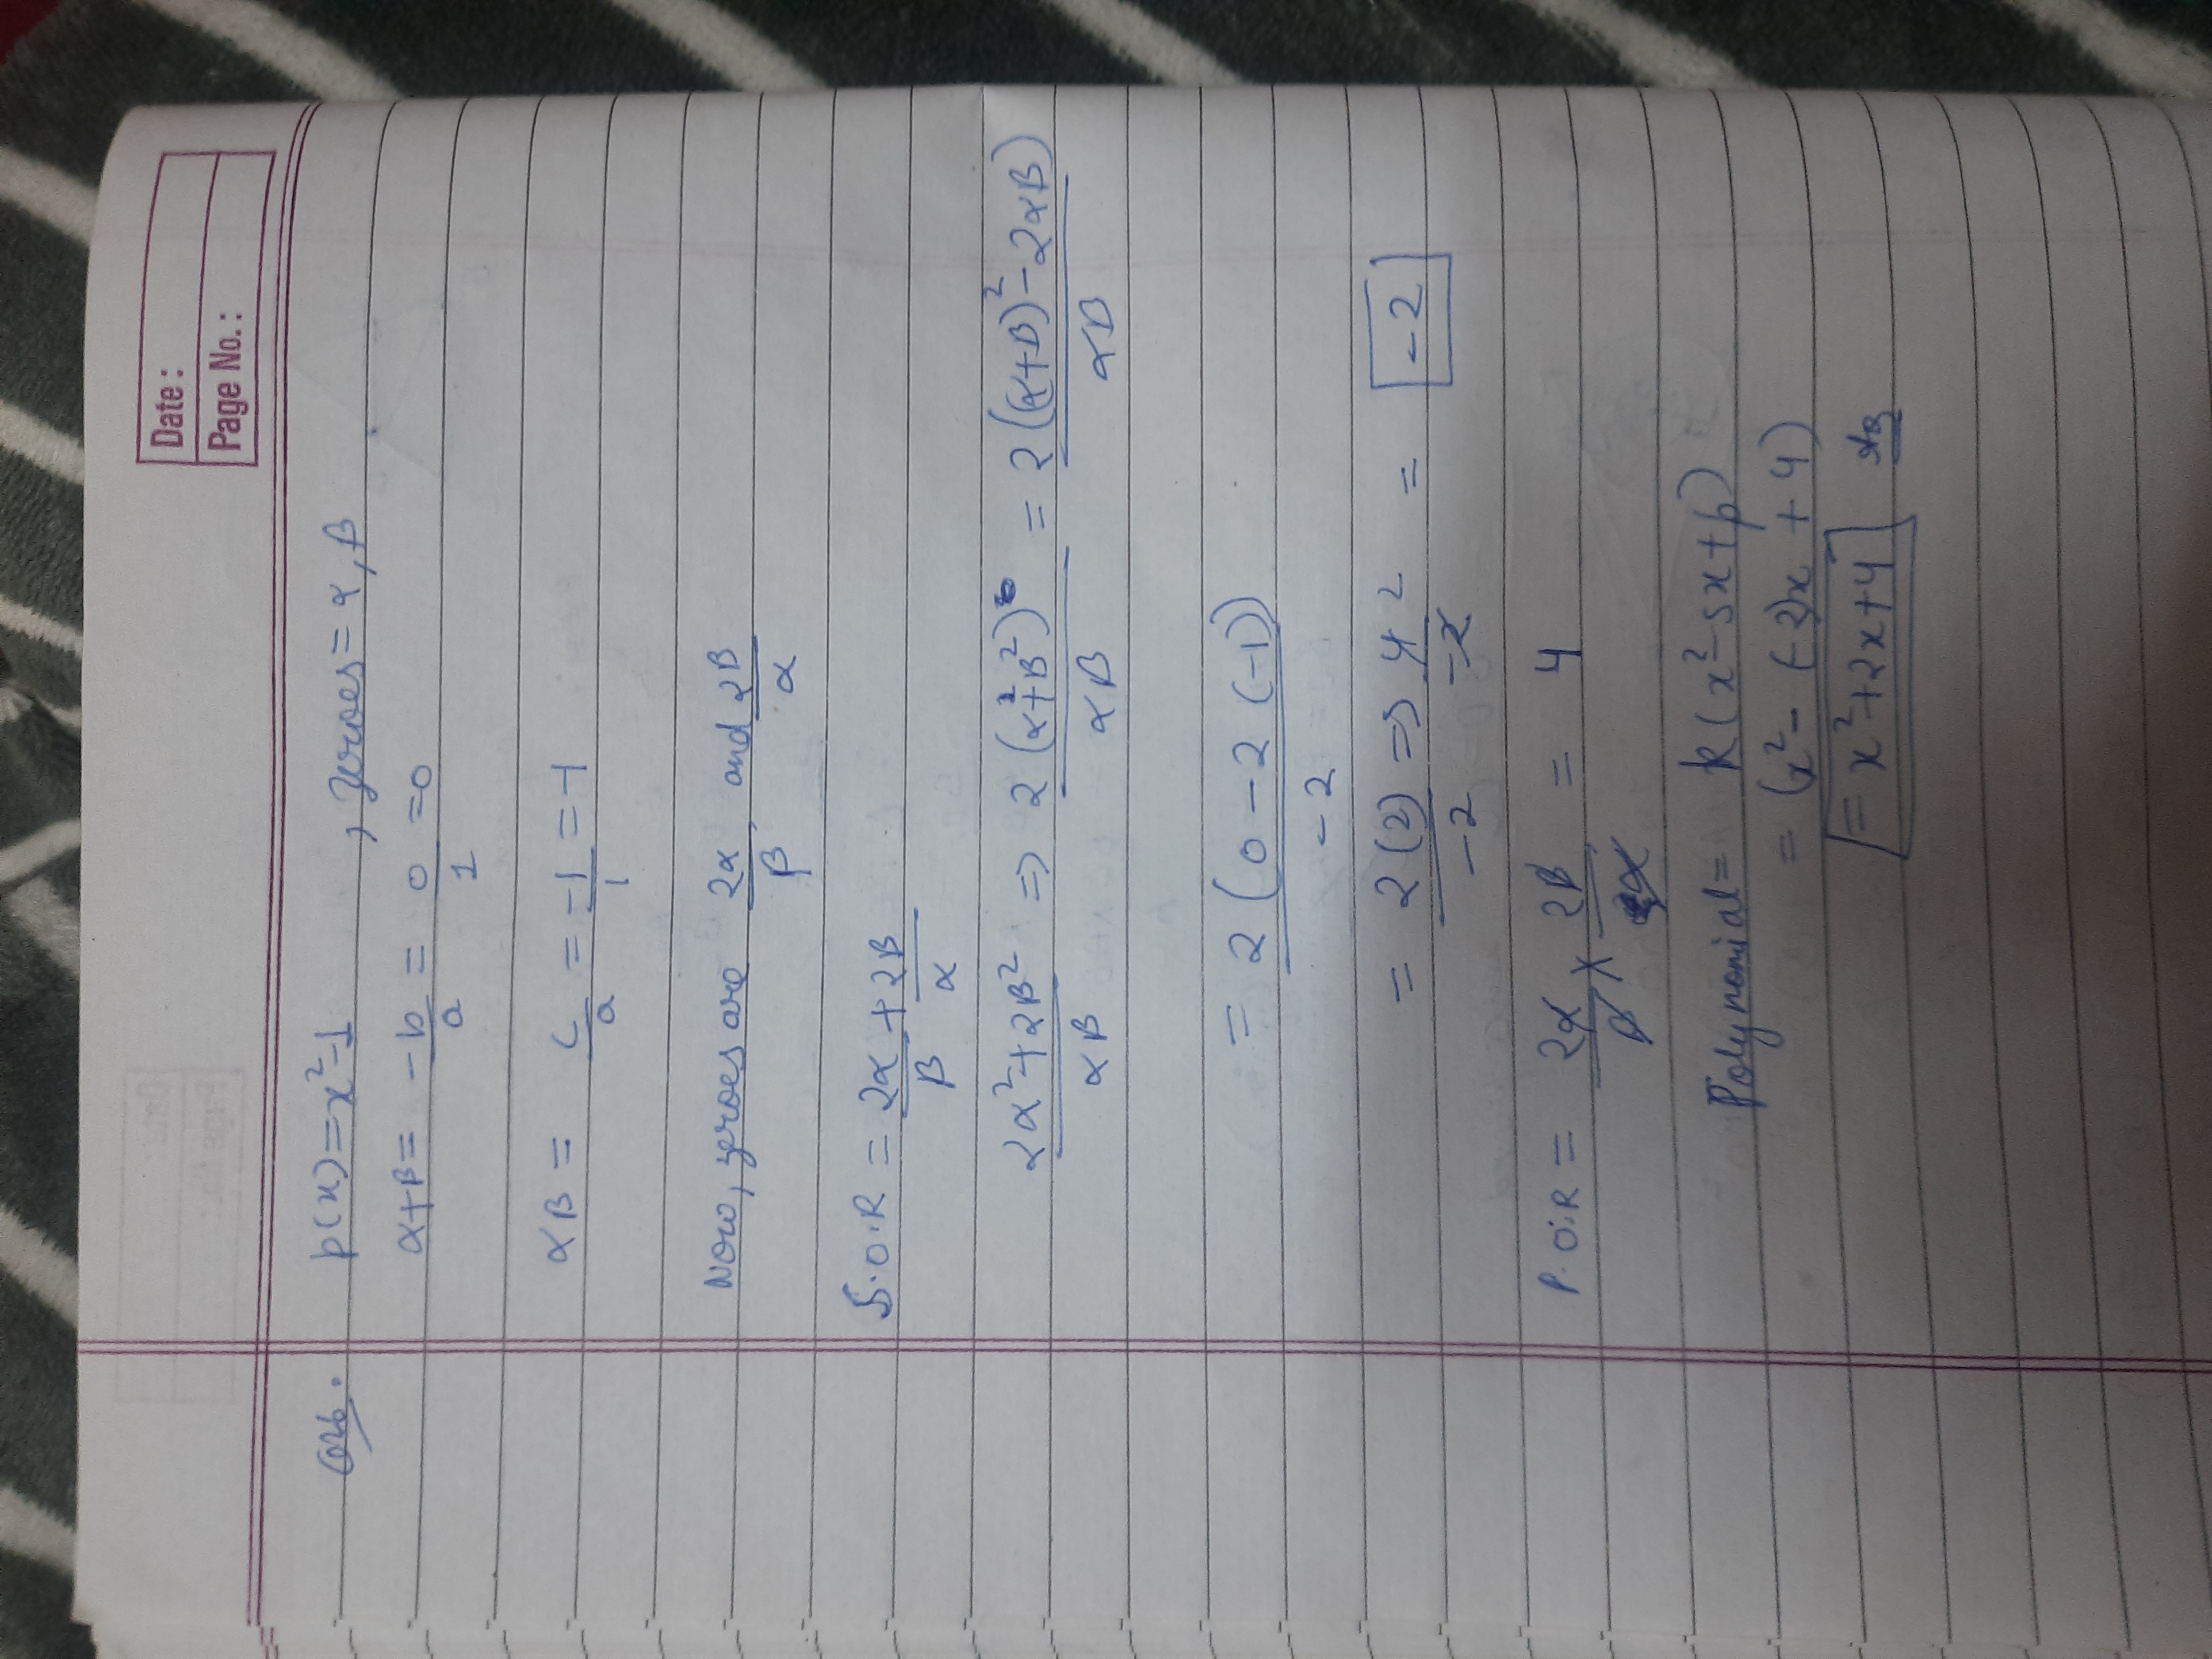 Date :
Page No. :
p(x) = x² - 1 , zeroes = α, β
α+β = -b/a = 0/1 = 0
αβ = c/a = -1/1 = -1
Now, zeroes are 2α/β and 2β/α
S.O.R = 2α/β + 2β/α
2α²+2β²/αβ => 2(α²+β²)/αβ = 2((α+β)²-2αβ)/αβ
= 2(0-2(-1))/-2
= 2(2)/-2 => 4²/-2 = -2
P.O.R = 2α/β × 2β/α = 4
Polynomial = k(x²-sx+p)
= (x²-(-2)x+4)
= x²+2x+4